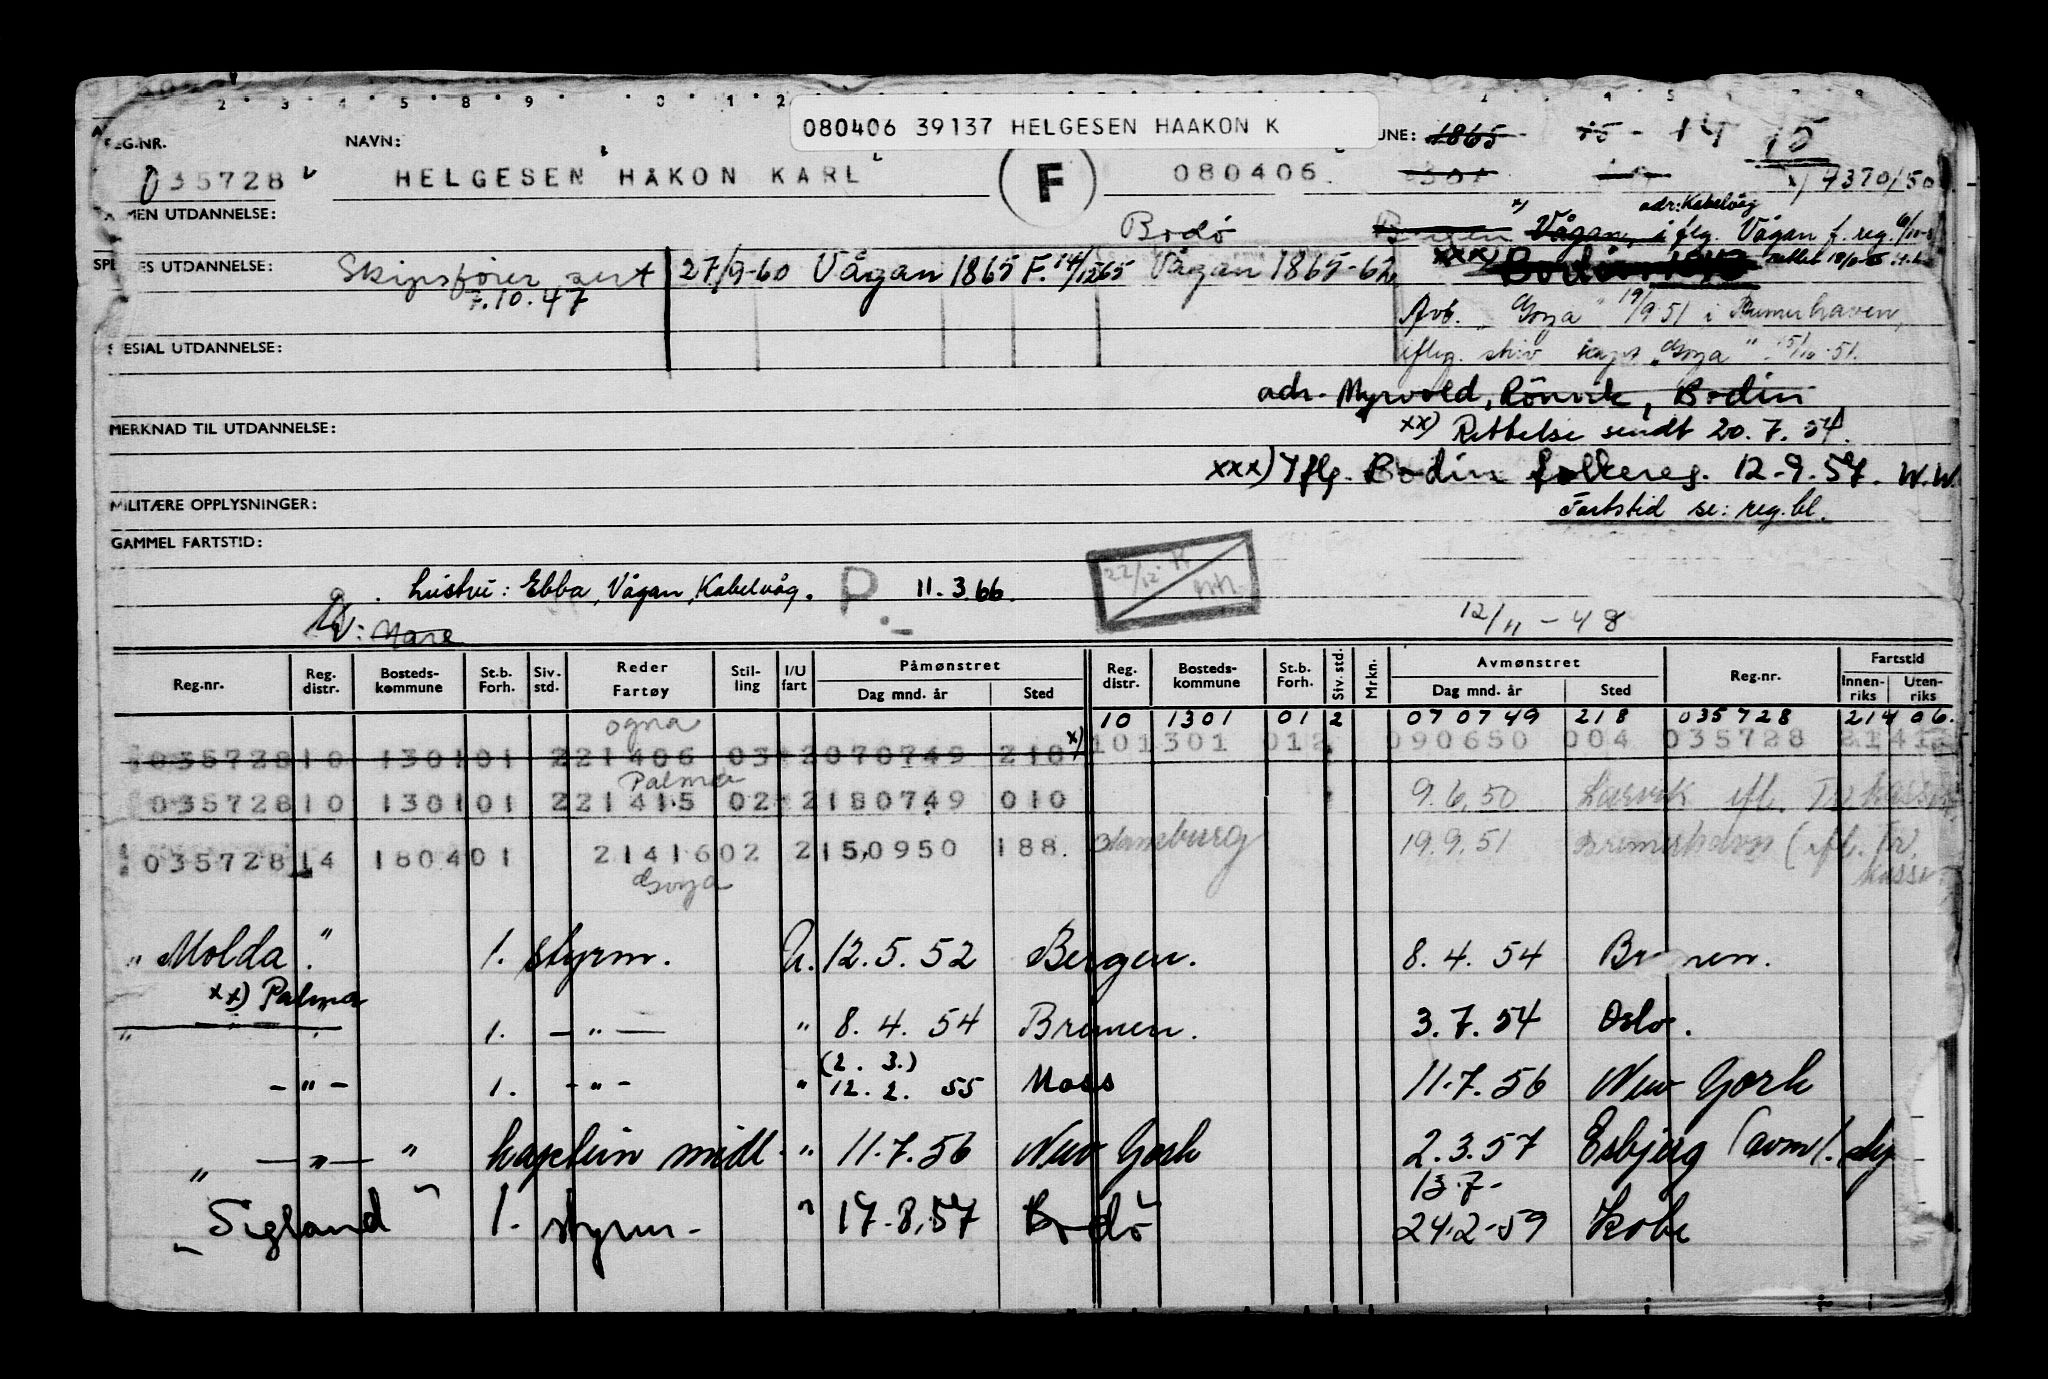 080406 39137 HELGESEN HAAKON K
REG.NR. NAVN: 1865 15 - 14 15
035728 HELGESEN HÅKON KARL F 080406 301 x) 7370/50
ALMEN UTDANNELSE:
adr: Kabelvåg
Bodö Bergen x) Vågan, i flg. Vågan f. reg.
SPESIAL UTDANNELSE:
Skipsfører sert 27/9-60 Vågan 1865 F. 14/12 65 Vågan 1865-62 xxx) Bodin
7.10.47
Avb. "Goya" 19/9 51 i Bremerhaven,
SPESIAL UTDANNELSE:
iflg. skriv kapt "Goya" 15/10-51.
adr. Myrvold, Rönvik, Bodin
MERKNAD TIL UTDANNELSE:
xx) Rettelse sendt 20.7.54.
xxx) Iflg. Bodin folkereg. 12-9.57. W.W.
MILITÆRE OPPLYSNINGER:
Fartstid se: reg.bl.
GAMMEL FARTSTID:
22/12
hustru: Ebba, Vågan, Kabelvåg. P. 11.3.66.
12/11-48
Reg.nr. Reg. distr. Bosteds-kommune St.b. Forh. Siv. std. Reder Fartøy Stil-ling I/U fart Påmønstret Dag mnd. år Sted Reg. distr. Bosteds-kommune St.b. Forh. Siv. std. Mrkn. Avmønstret Dag mnd. år Sted Reg.nr. Fartstid Innen-riks Uten-riks
ogna 10 1301 01 2 070749 218 035728 214 06.
035728 10 1301 01 2 21406 03 2 070749 210 x) 10 1301 01 2 090650 004 035728
Palma
035728 10 1301 01 2 21415 02 2 180749 010 9.6.50 Larvik ifl. Tr kasse
035728 14 1804 01 21416 02 2 150950 188. Hamburg 19.9.51 Bremerhaven (ifl. Tr kasse
Goya
" Molda " 1. styrm. U. 12.5.52 Bergen. 8.4.54 Bremen.
xx) Palma
" " 1. -"- " 8.4.54 Bremen. 3.7.54 Oslo.
(2. 3.)
-"- 1. -"- " 12.2.55 Moss 11.7.56 New York
" -"- " kaptein midl. " 11.7.56 New York 2.3.57 Esbjerg (avm.
13.7-
" Sigland " 1. styrm - " 17.8.57 Bodö 24.2-59 Kobe